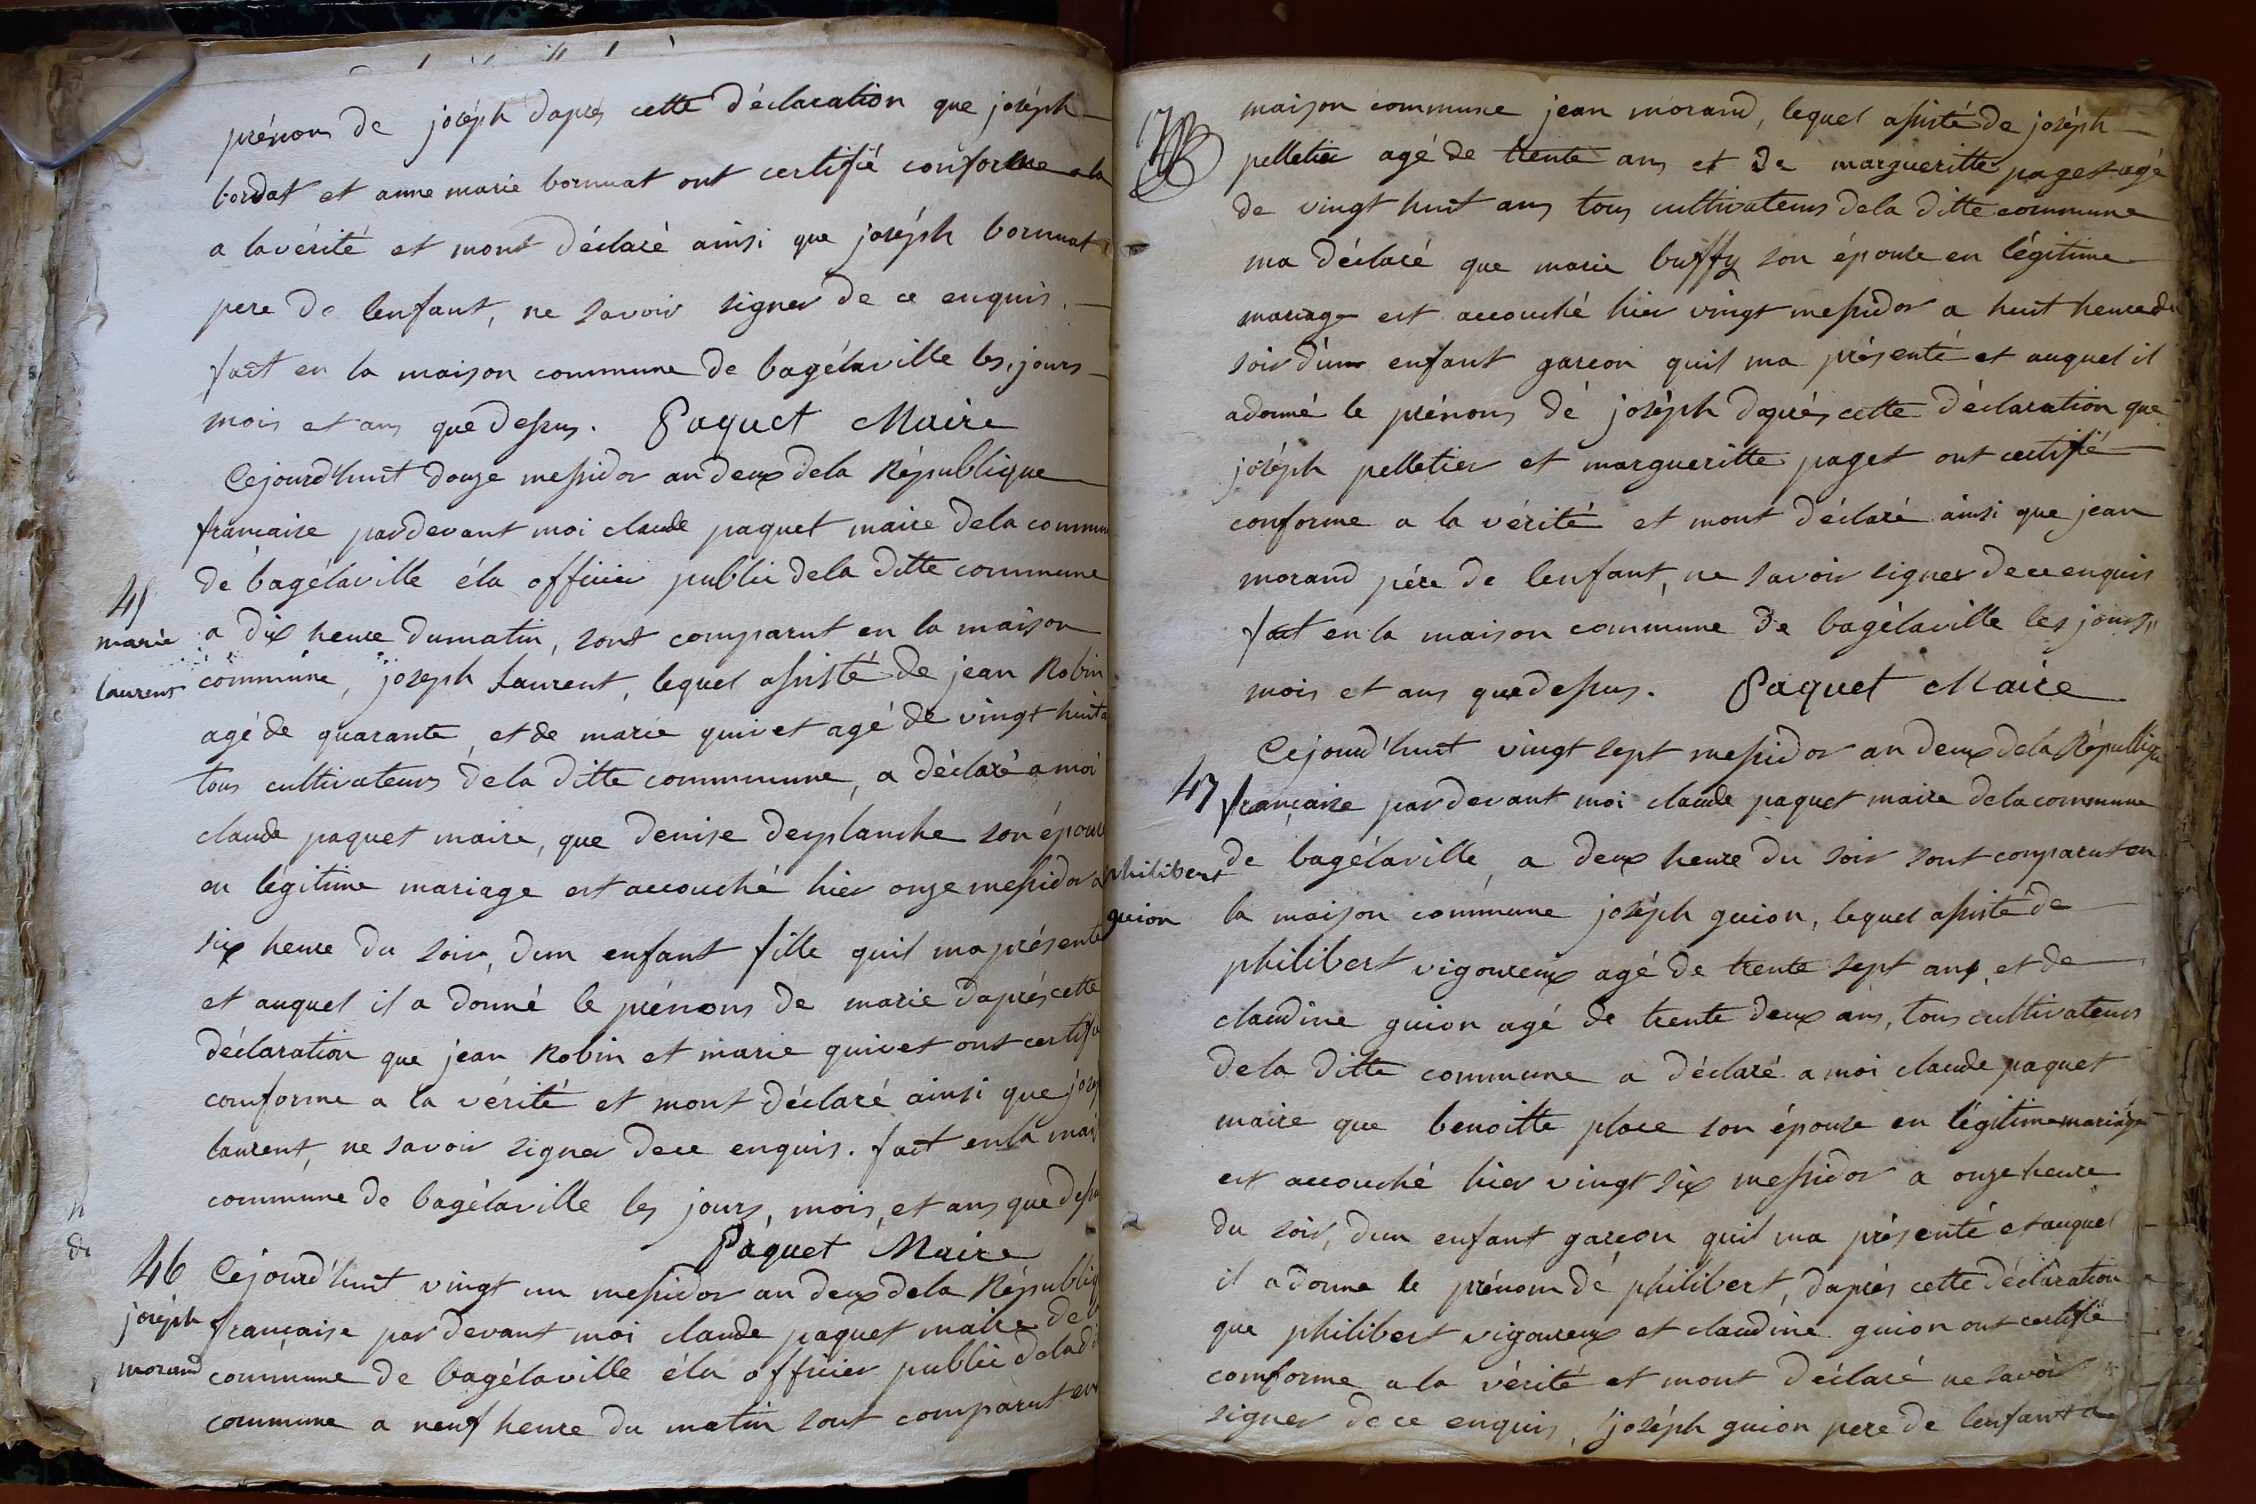 prénom de joséph daprés cette déclaration que joséph
bordat et anne marie bornuat ont certifié conforme a la
a la vérité et mont déclaré ainsi que joséph bornuat
pere de lenfant, ne savoir signer de ce enquis.
fait en la maison commune de bagélaville les jours
mois et ans que dessus. Paquet Maire
Cejourd'huit douze messidor an deux dela République
francaise pardevant moi claude paquet maire dela commune
de bagélaville élu officier public dela ditte commune
45
marie
laurent
a dix heure dumatin, sont comparut en la maison
commune, joseph Laurent, lequel assisté de jean Robin
agé de quarante, et de marie quivet agé de vingt huit
tous cultivateurs dela ditte commmune, a déclaré a moi
claude paquet maire, que denise desplanche son épouse
en légitime mariage est accouché hier onze messidor a
six heure du soir, dun enfant fille quil ma présenté
et auquel il a donné le prénons de marie daprés cette
déclaration que jean Robin et marie quivet ont certifié
conforme a la vérité et mont déclaré ainsi que josep
laurent, ne savoir signer dece enquis. fait en la mai
commune de bagélaville les jours, mois, et ans que dessu
Paquet Maire
46
joséph
morand
Céjourd'huit vingt un messidor an deux dela Républiq
francaise par devant moi claude paquet maire del
commune de bagélaville élu officier public dela di
commune a neuf heure du matin sont comparut en
maison commune jean morand, lequel assisté de joséph
pelletier agé de trente ans et de margueritte paget agé
de vingt huit ans tous cultivateurs dela ditte commune
ma déclaré que marie buffy son épouse en légitime
mariage est accouché hier vingt messidor a huit heure du
soir d'un enfant garcon quil ma présenté et auquel il
adonné le prénons de joséph daprés cette déclaration que
joséph pelletier et margueritte paget ont certifié
conforme a la vérité et mont déclaré ainsi que jean
morand pére de lenfant, ne savoir signer de ce enquis
fait en la maison commune de bagélaville les jours,
mois et ans que dessus. Paquet Maire
Cejourd'huit vingt sept messidor an deux dela Républiqu
47
philibert
guion
francaise par devant moi claude paquet maire dela commune
de bagélaville, a deux heure du soir sont comparut en
la maison commune joséph guion, lequel assisté de
philibert vigoureux agé de trente sept ans et de
claudine guion agé de trente deux ans, tous cultivateurs
dela ditte commune a déclaré a moi claude paquet
maire que benoitte place son épouse en légitime mariage
est accouché hier vingt six messidor a onze heure
du soir, dun enfant garcon quil ma présenté et auquel
il a donne le prénom dé philibert, daprés cette déclaration
que philibert vigoureux et claudine guion ont certifié
conforme a la vérité et mont déclaré ne savoir
signer de ce enquis, joséph guion pere de lenfant a